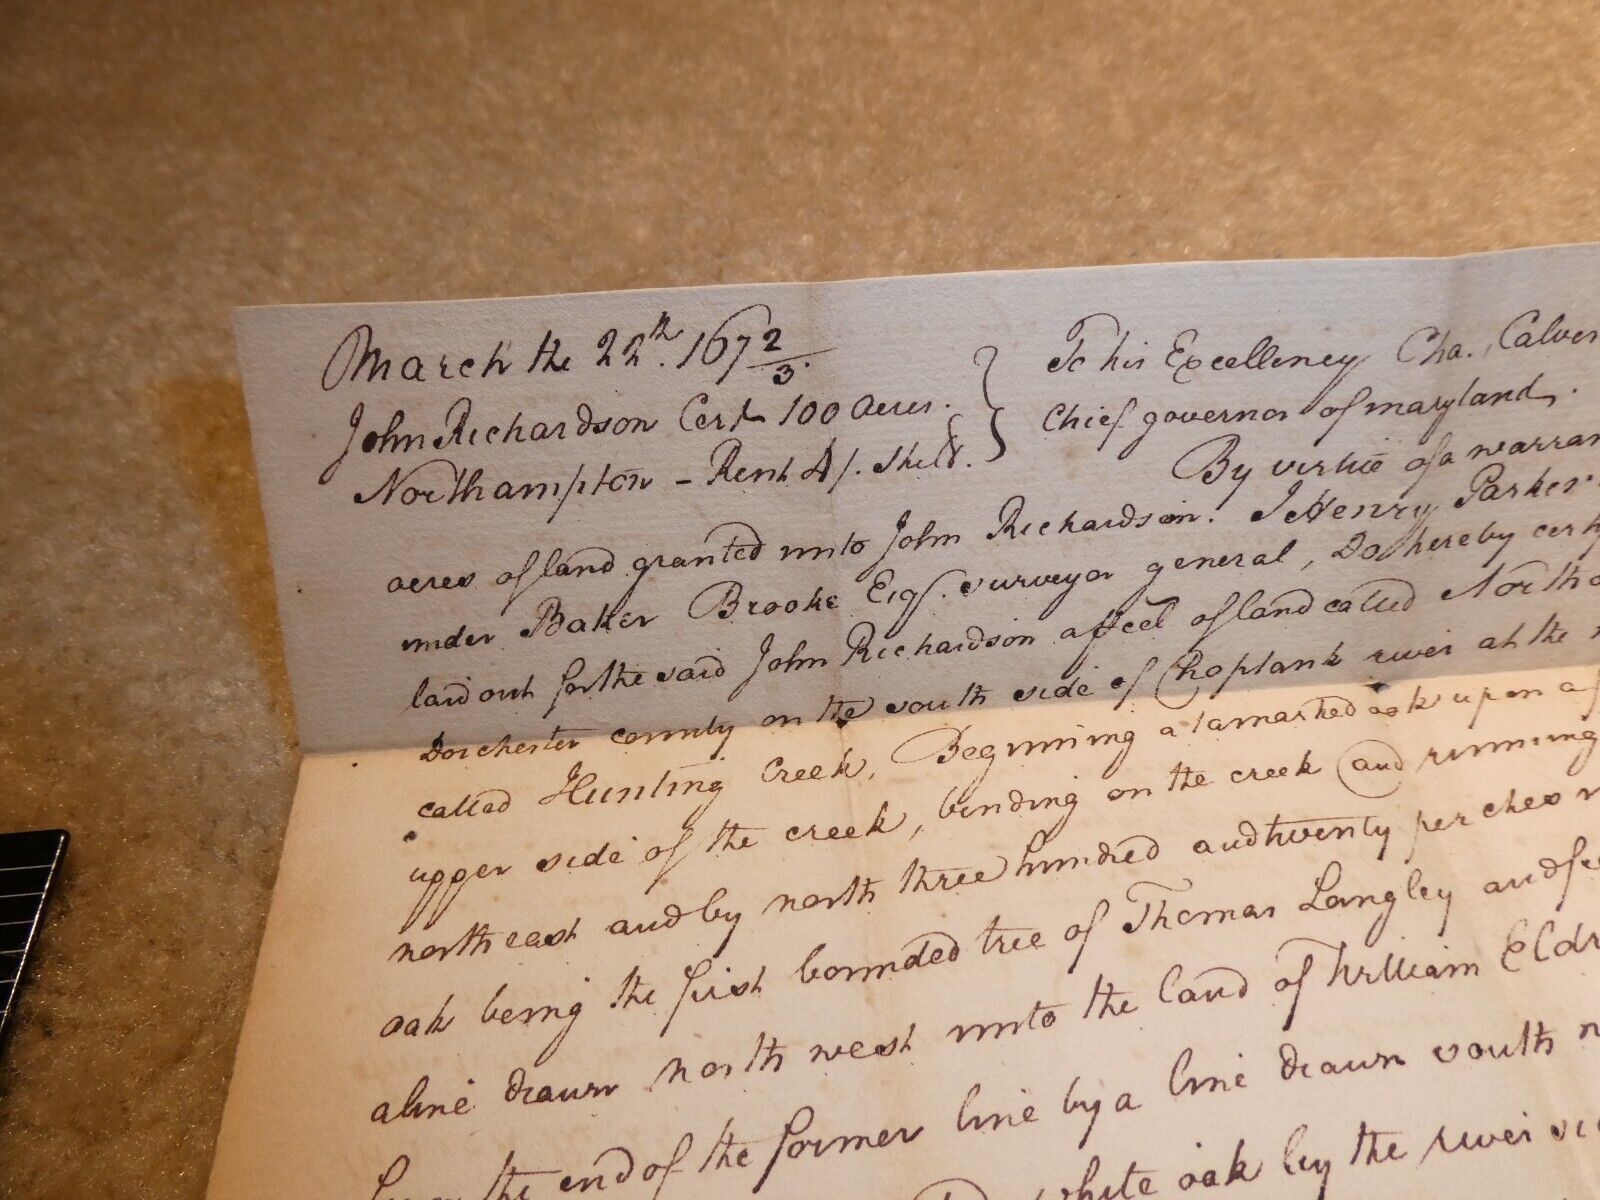 March the 22th. 1672/3.
John Richardson Cert 100 acres.
Northampton - Rent 4/. Shill.
To his Excellency Cha. Calver
Chief governor of maryland.
By virtue of a warran
acres of land granted unto John Richardson. I Henry Parker
under Baker Brooke Esqr. surveyor general, Do hereby certi
laid out for the said John Richardson a pcel of land called North
Dorchester county on the south side of Choptank river at the
called Hunting Creek, Beginning at a marked oak upon a
upper side of the creek, binding on the creek and running
north east and by north three hundred and twenty perches
oak being the first bounded tree of Thomas Langley and
a line drawn north west unto the land of William Eldr
the end of the former line by a line drawn south
white oak by the river